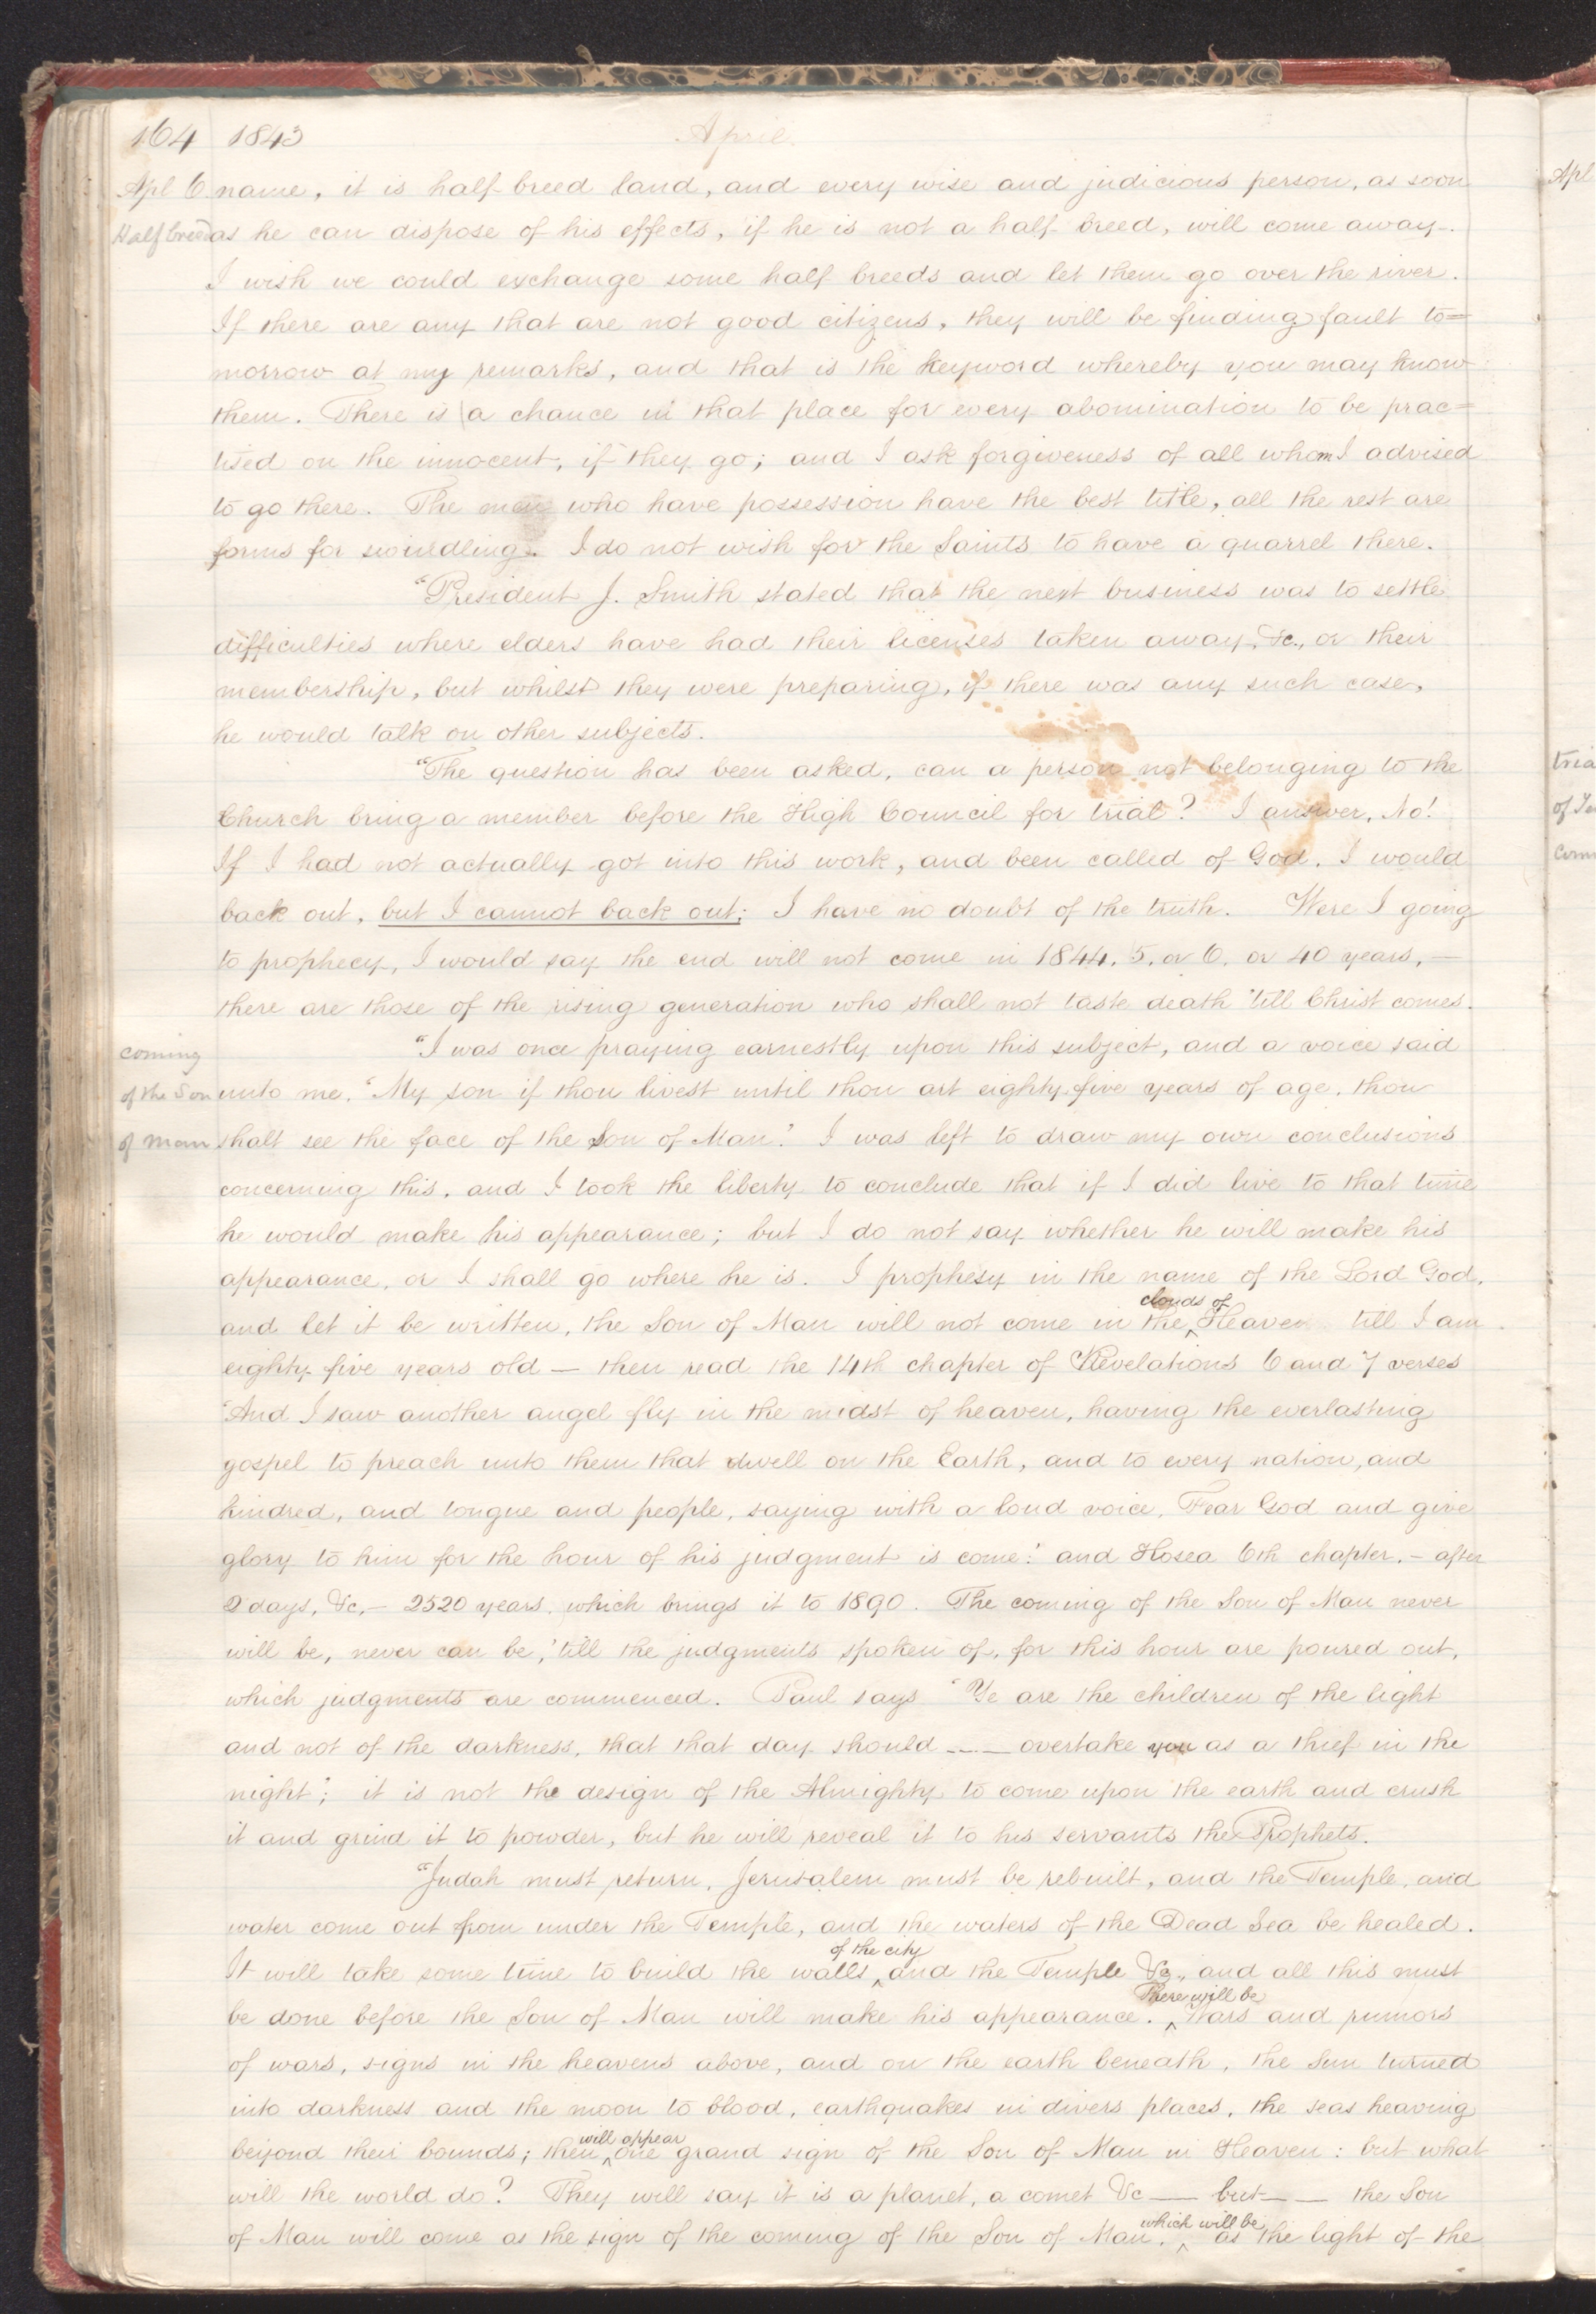 164 1843 April.
Apl 6 name, it is half breed land, and every wise and judicious person, as soon
Half breed as he can dispose of his effects, if he is not a half breed, will come away.
I wish we could exchange some half breeds and let them go over the river.
If there are any that are not good citizens, they will be finding fault to=
morrow at my remarks, and that is the keyword whereby you may know
them. There is a chance in that place for every abomination to be prac=
tised on the innocent, if they go; and I ask forgiveness of all whom I advised
to go there. The men who have possession have the best title, all the rest are
forms for swindling. I do not wish for the Saints to have a quarrel there.
"President J. Smith stated that the next business was to settle
difficulties where elders have had their licenses taken away, &c., or their
membership, but whilst they were preparing, if there was any such case,
he would talk on other subjects.
"The question has been asked, can a person not belonging to the
Church bring a member before the High Council for trial? I answer, No!
If I had not actually got into this work, and been called of God, I would
back out, but I cannot back out; I have no doubt of the truth. Were I going
to prophecy, I would say the end will not come in 1844, 5, or 6, or 40 years, —
there are those of the rising generation who shall not taste death 'till Christ comes.
coming "I was once praying earnestly upon this subject, and a voice said
of the Son unto me, "My son if thou livest until thou art eighty five years of age, thou
of Man shalt see the face of the Son of Man." I was left to draw my own conclusions
concerning this, and I took the liberty to conclude that if I did live to that time
he would make his appearance; but I do not say whether he will make his
appearance, or I shall go where he is. I prophesy in the name of the Lord God,
and let it be written, the Son of Man will not come in the clouds of Heaven till I am
eighty five years old — then read the 14th chapter of Revelations 6 and 7 verses
"And I saw another angel fly in the midst of heaven, having the everlasting
gospel to preach unto them that dwell on the Earth, and to every nation, and
kindred, and tongue and people, saying with a loud voice, Fear God and give
glory to him for the hour of his judgment is come:' and Hosea 6th chapter. – after
2 days, &c, – 2520 years, which brings it to 1890. The coming of the Son of Man never
will be, never can be, 'till the judgments spoken of, for this hour are poured out,
which judgments are commenced. Paul says "Ye are the children of the light
and not of the darkness, that that day should ——— overtake you as a thief in the
night"; it is not the design of the Almighty to come upon the earth and crush
it and grind it to powder, but he will reveal it to his servants the Prophets.
"Judah must return, Jerusalem must be rebuilt, and the Temple, and
water come out from under the Temple, and the waters of the Dead Sea be healed.
It will take some time to build the walls of the city and the Temple &c., and all this must
be done before the Son of Man will make his appearance. There will be Wars and rumors
of wars, signs in the heavens above, and on the earth beneath, the Sun turned
into darkness and the moon to blood, earthquakes in divers places, the seas heaving
beyond their bounds; then will appear one grand sign of the Son of Man in Heaven: but what
will the world do? They will say it is a planet, a comet &c — but — — the Son
of Man will come as the sign of the coming of the Son of Man, which will be as the light of the
Apl
tria
of
com